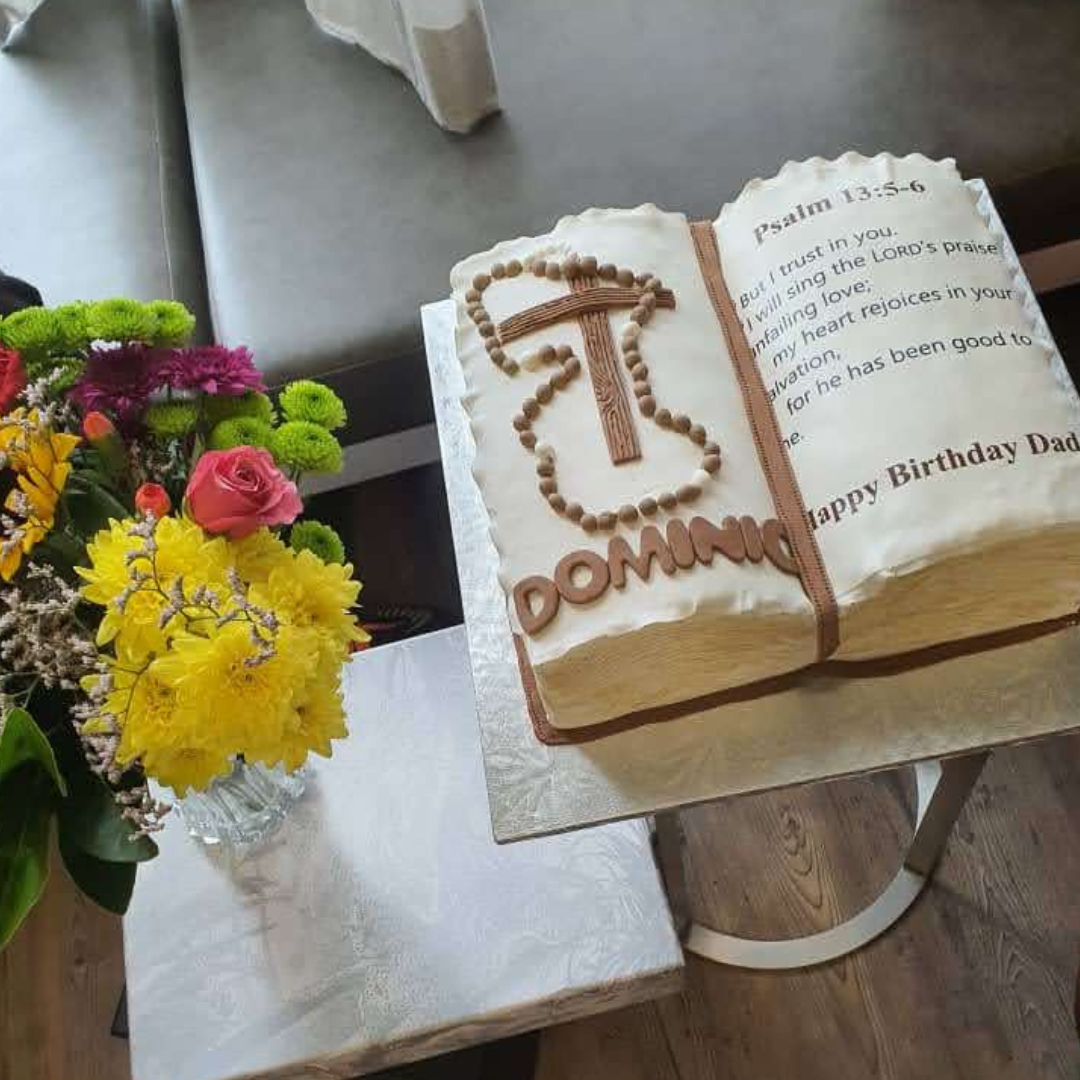 DOMINIC
Psalm 13:5-6
But I trust in you.
I will sing the LORD's praise
unfailing love;
my heart rejoices in your
salvation,
for he has been good to
me.
Happy Birthday Dad